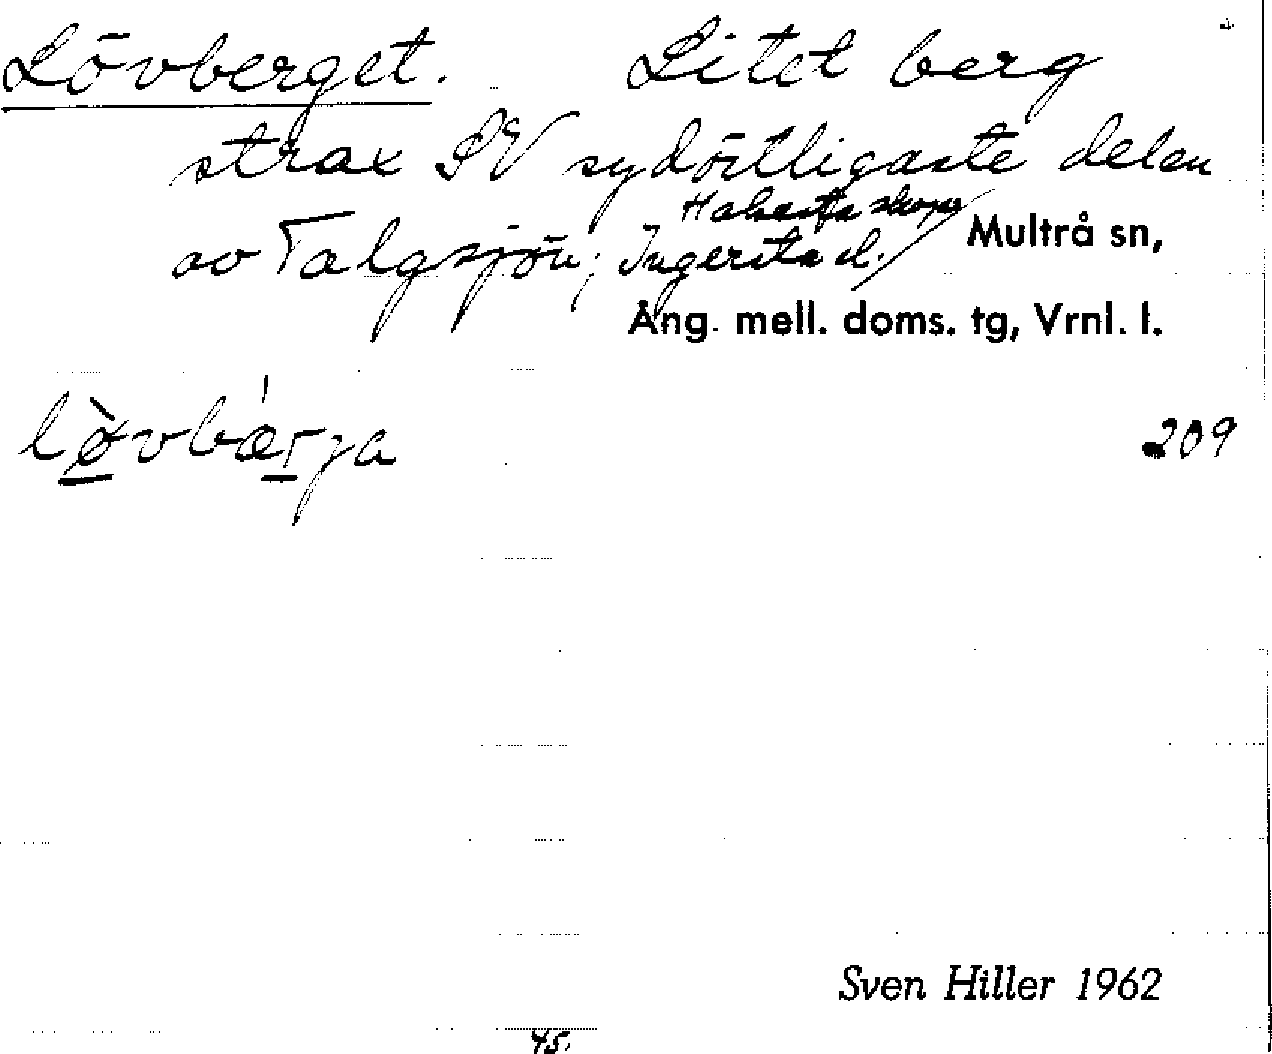 Lövberget. Litet berg
strax SV sydöstligaste delen
Habersta skogs
av Talgsjön; Ingersta d. Multrå sn,
Ång. mell. doms. tg, Vrnl. l.
lø̀vbǽrja 209
Sven Hiller 1962
45.